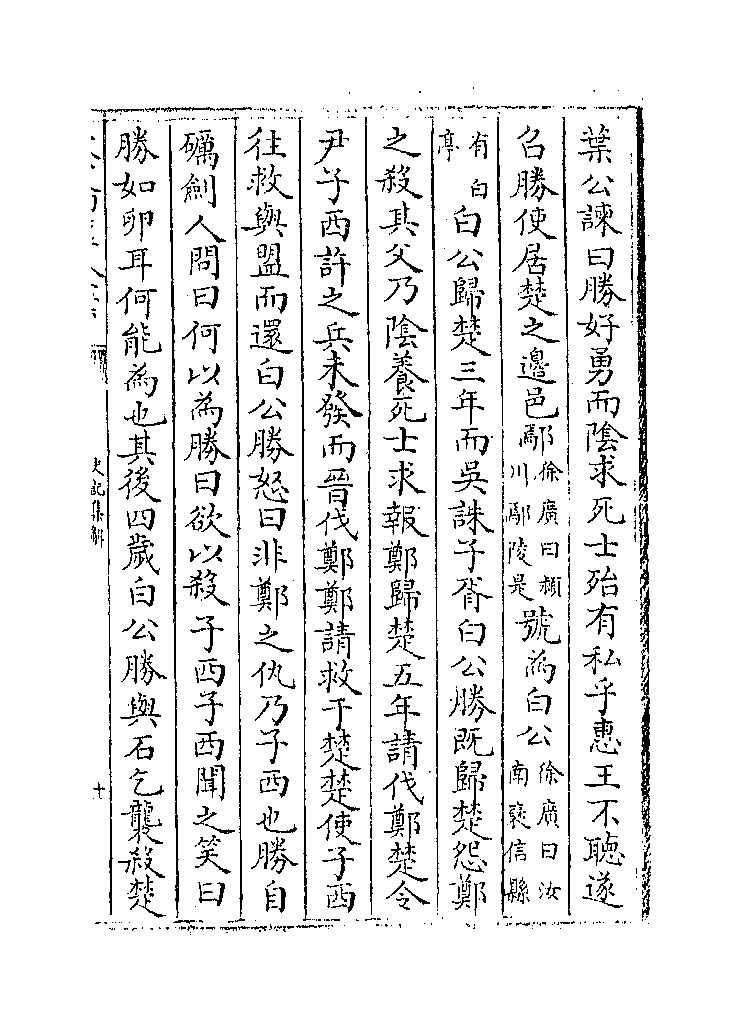 葉公諫曰勝好勇而陰求死士殆有私乎惠王不聽遂
召勝使居楚之邊邑鄢徐廣曰潁川鄢陵是號為白公徐廣曰汝南襃信縣
有白亭白公歸楚三年而吳誅子胥白公勝既歸楚怨鄭
之殺其父乃陰養死士求報鄭歸楚五年請伐鄭楚令
尹子西許之兵未發而晉伐鄭鄭請救于楚楚使子西
往救與盟而還白公勝怒曰非鄭之仇乃子西也勝自
礪劍人問曰何以為勝曰欲以殺子西子西聞之笑曰
勝如卵耳何能為也其後四歲白公勝與石乞襲殺楚
史記集解
十